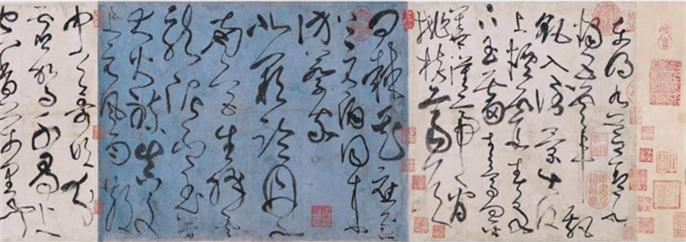 東明九芝蓋北
燭五雲車飄
飖入倒景出沒
上煙霞春泉
下玉霤青鳥向金
華漢帝看
桃核齊侯
問棘花應逐
上元酒同來
訪蔡家
北闕臨丹水
南宮生絳雲
龍泥印玉簡
大火煉真文
上元風雨散
中天哥吹分
虛駕千尋上
空香萬里聞